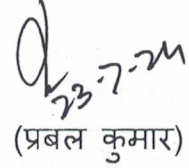 23-7-24
(प्रबल कुमार)